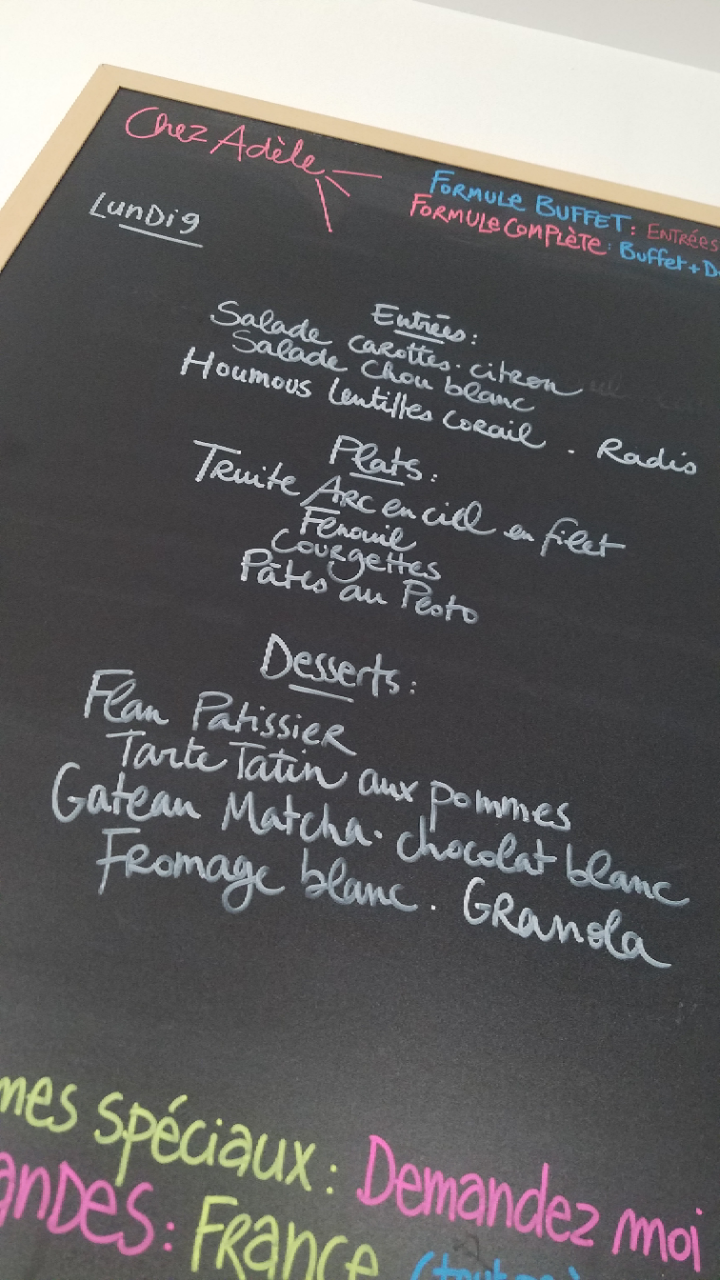 Chez Adèle
FORMULE BUFFET : ENTRÉES
FORMULE COMPLÈTE : Buffet + D
Lundi 9
Entrées :
Salade carottes . citron
Salade chou blanc
Houmous lentilles corail . Radis
Plats :
Truite Arc en ciel en filet
Fenouil
Courgettes
Pâtes au Pesto
Desserts :
Flan Patissier
Tarte Tatin aux pommes
Gateau Matcha . chocolat blanc
Fromage blanc . Granola
mes spéciaux : Demandez moi
andes : France